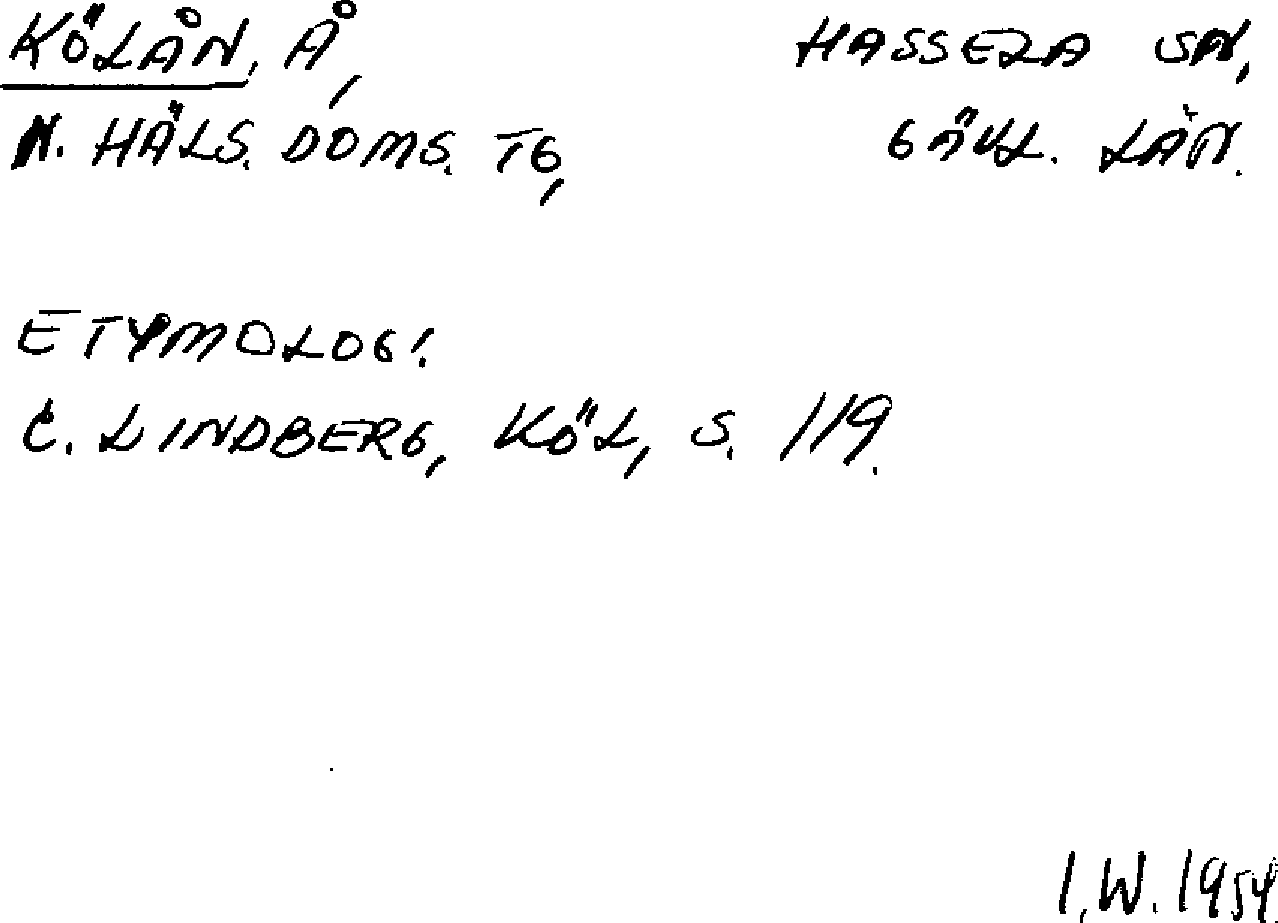 KÖLÅN, Å, HASSELA SN,
N. HÄLS. DOMS. TG, GÄVL. LÄN.
ETYMOLOGI.
C. LINDBERG, KÖL, S. 119.
I.W. 1954